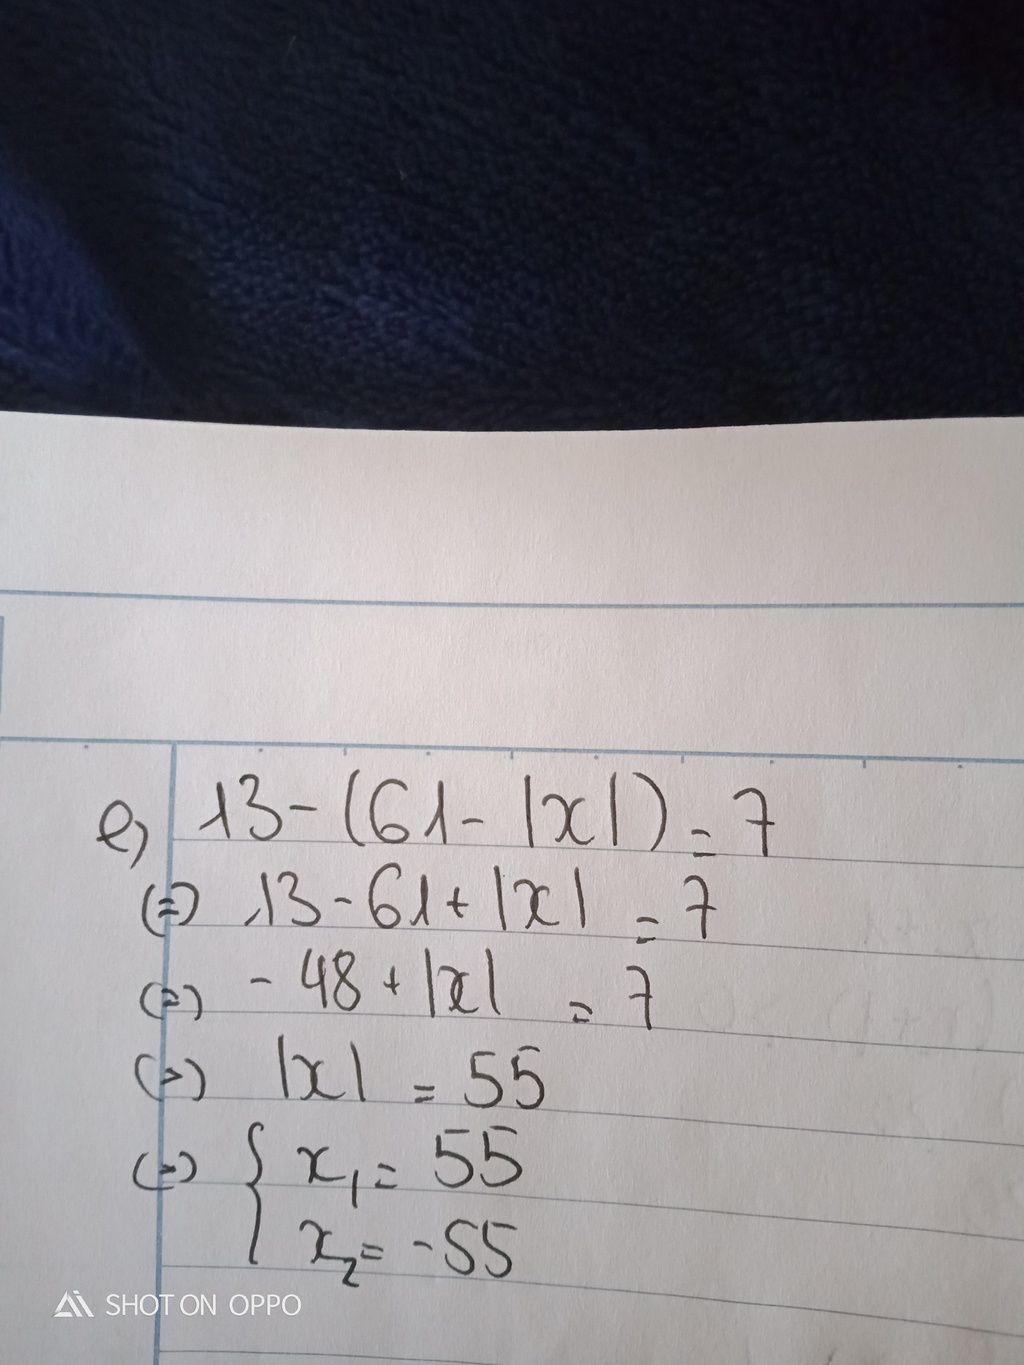 e, 13-(61-|x|)=7
(=) 13-61+|x| =7
(=) -48+|x| =7
(=) |x| =55
(=) { x₁= 55
x₂= -55
SHOT ON OPPO